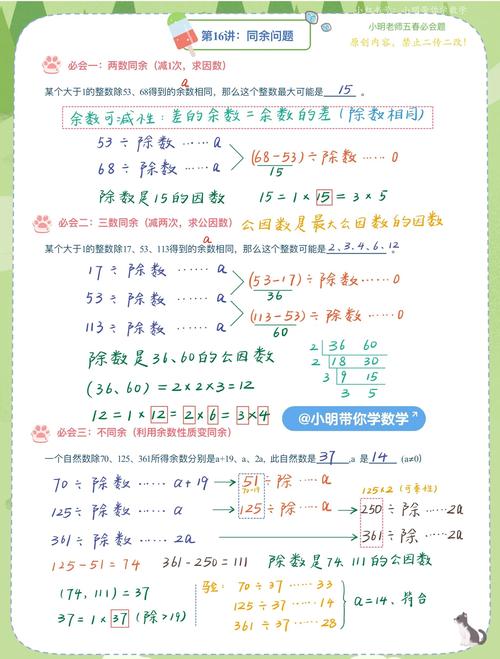 小红书号：小明带你学数学
小明老师五春必会题
第16讲：同余问题
原创内容，禁止二传二改！
必会一：两数同余（减1次，求因数）
a
某个大于1的整数除53、68得到的余数相同，那么这个整数最大可能是 15 。
余数可减性：差的余数=余数的差（除数相同）
53÷除数……a
68÷除数……a
(68-53)÷除数……0
15
除数是15的因数 15=1×15=3×5
必会二：三数同余（减两次，求公因数） 公因数是最大公因数的因数
a
某个大于1的整数除17、53、113得到的余数相同，那么这个整数可能是 2、3、4、6、12 。
17÷除数……a
(53-17)÷除数……0
36
53÷除数……a
(113-53)÷除数……0
60
113÷除数……a
除数是36、60的公因数
2 36 60
2 18 30
3 9 15
3 5
(36、60)=2×2×3=12
12=1×12=2×6=3×4
@小明带你学数学
必会三：不同余（利用余数性质变同余）
一个自然数除70、125、361所得余数分别是a+19、a、2a，此自然数是 37 ,a 是 14 (a≠0)
70÷除数……a+19 51÷除……a
70-19
125×2（可乘性）
125÷除数……a 125÷除……a 250÷除……2a
361÷除数……2a 361÷除……2a
125-51=74 361-250=111 除数是74、111的公因数
(74,111)=37
37=1×37(除>19)
验：70÷37……33
125÷37……14
361÷37……28
a=14、符合